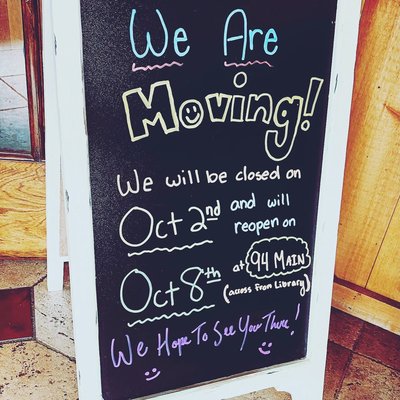 We Are
Moving!
We will be closed on
Oct 2nd and will
reopen on
Oct 8th at 94 MAIN
(across from Library)
We Hope To See You There!